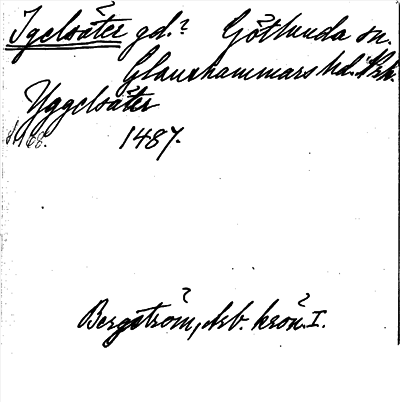 Igelsäter gd.? Götlunda sn.
Glanshammars hd. Örk.
Yggelsäter
s. 168. 1487.
Bergström, Arb. krön. I.